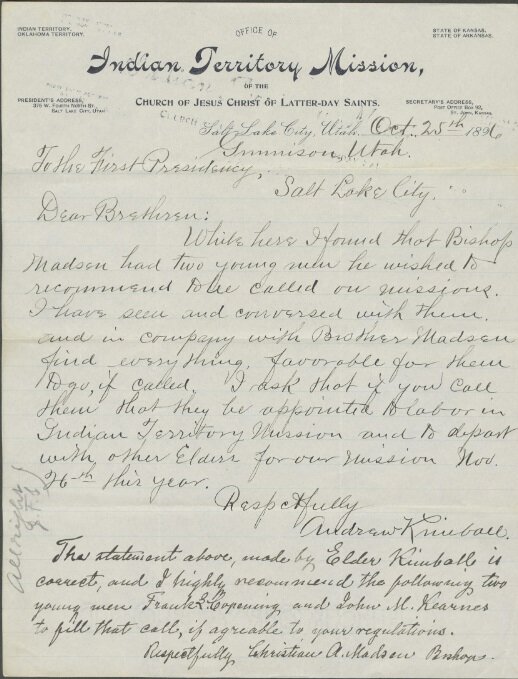 INDIAN TERRITORY,
OKLAHOMA TERRITORY.
STATE OF KANSAS.
STATE OF ARKANSAS.
OFFICE OF
Indian Territory Mission,
OF THE
CHURCH OF JESUS CHRIST OF LATTER-DAY SAINTS.
PRESIDENT'S ADDRESS,
375 W. FOURTH NORTH ST.
SALT LAKE CITY, UTAH
SECRETARY'S ADDRESS,
POST OFFICE BOX 92,
ST. JOHN, KANSAS
Salt Lake City, Utah, Oct. 25th 1896
Gunnison, Utah.
To the First Presidency,
Salt Lake City.
Dear Brethren:
While here I found that Bishop
Madsen had two young men he wished to
recommend to be called on missions.
I have seen and conversed with them
and in company with Brother Madsen
find everything favorable for them
to go, if called. I ask that if you call
them that they be appointed to labor in
Indian Territory Mission and to depart
with other Elders for our Mission Nov.
26th this year.
Respctfully
Andrew Kimball.
Allright
J. F. S.
The statement above, made by Elder Kimball is
correct, and I highly recommend the following two
young men Frank Copening and John M. Kearnes
to fill that call, if agreable to your regulations.
Respectfully Christian A. Madsen Bishop.